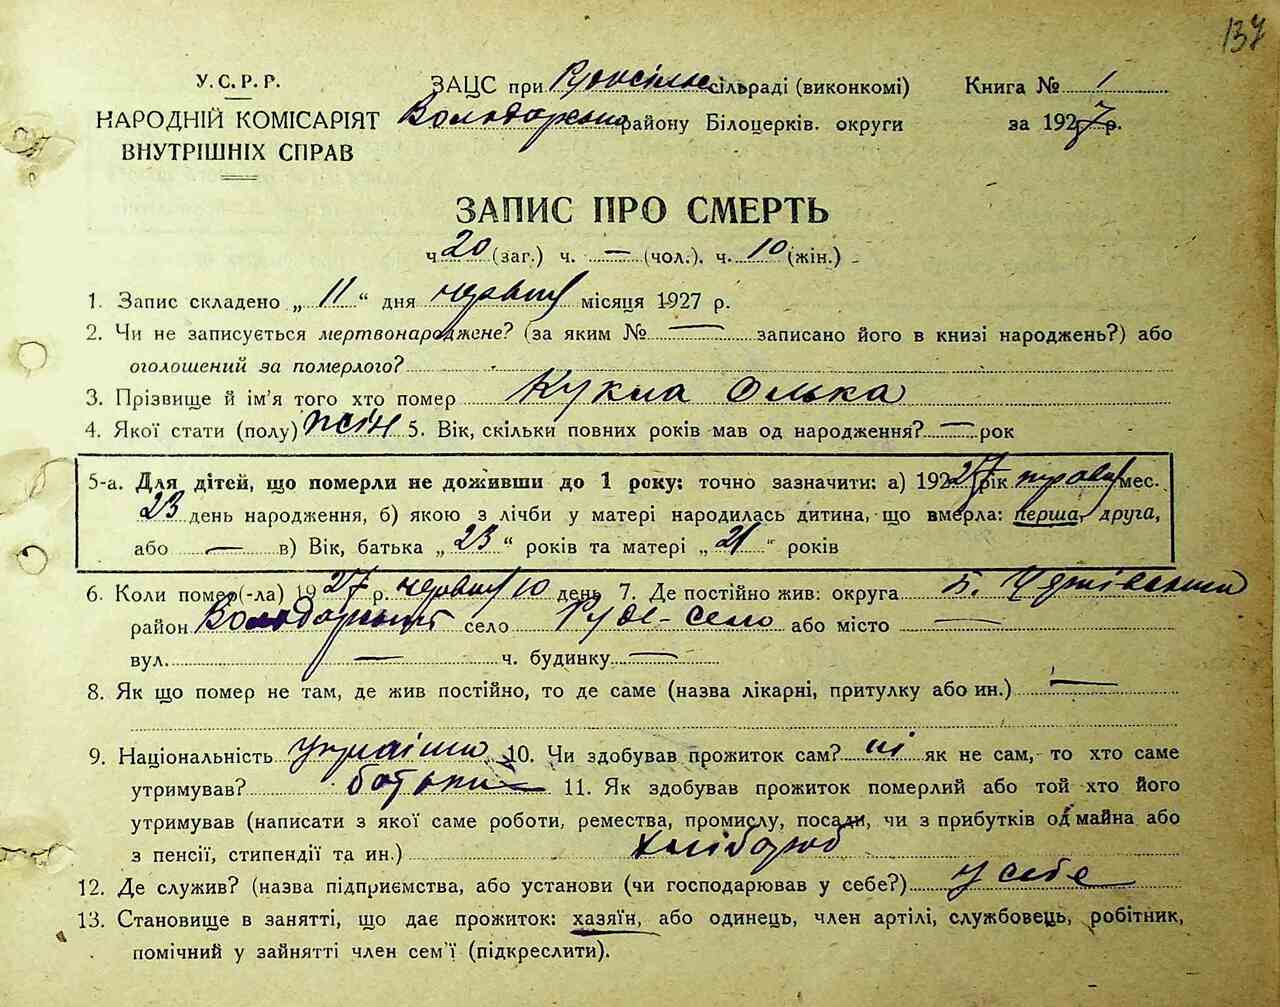 137
У.С.Р.Р.
НАРОДНІЙ КОМІСАРІЯТ
ВНУТРІШНІХ СПРАВ
ЗАЦС при сільраді (виконкомі)
району Білоцерків. округи
Книга № 1
за 1927 р.
ЗАПИС ПРО СМЕРТЬ
ч 20 (заг.) ч. — (чол.). ч. 10 (жін.)
1. Запис складено „ 11 “ дня червня місяця 1927 р.
2. Чи не записується мертвонароджене? (за яким № — записано його в книзі народжень?) або
оголошений за померлого?
3. Прізвище й ім'я того хто помер Кукла Олька
4. Якої стати (полу) жін 5. Вік, скільки повних років мав од народження? — рок
5-а. Для дітей, що померли не доживши до 1 року: точно зазначити: а) 1927 рік травня мес.
23 день народження, б) якою з лічби у матері народилась дитина, що вмерла: перша, друга,
або — в) Вік, батька „ 23 “ років та матері „ 21 “ років
6. Коли помер(-ла) 1927 р. червня 10 день 7. Де постійно жив: округа Б. Церківщини
район Володарський село Руде-село або місто —
вул. — ч. будинку —
8. Як що помер не там, де жив постійно, то де саме (назва лікарні, притулку або ин.) —
9. Національність 10. Чи здобував прожиток сам? ні як не сам, то хто саме
утримував? батьки 11. Як здобував прожиток померлий або той хто його
утримував (написати з якої саме роботи, ремества, промислу, посади, чи з прибутків од майна або
з пенсії, стипендії та ин.) хлібороб
12. Де служив? (назва підприємства, або установи (чи господарював у себе?) у себе
13. Становище в занятті, що дає прожиток: хазяїн, або одинець, член артілі, службовець, робітник,
помічний у зайнятті член сем'ї (підкреслити).